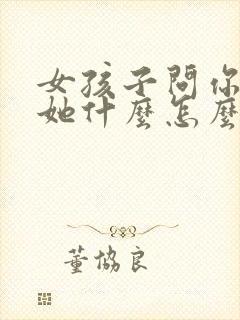 女孩子問你
她什麼怎麼
董協良